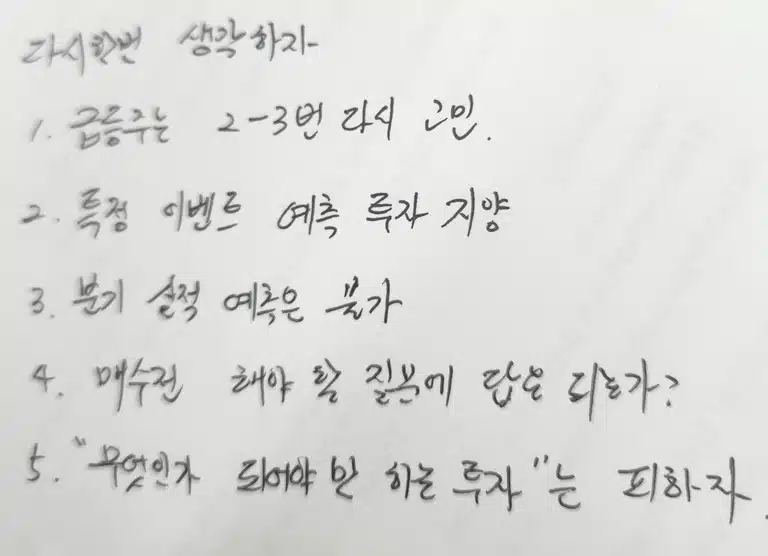 다시한번 생각하자
1. 급등주는 2-3번 다시 고민.
2. 특정 이벤트 예측 투자 지양
3. 분기 실적 예측은 불가
4. 매수전 해야 할 질문에 답은 되는가?
5. "무엇인가 되어야만 하는 투자"는 피하자.